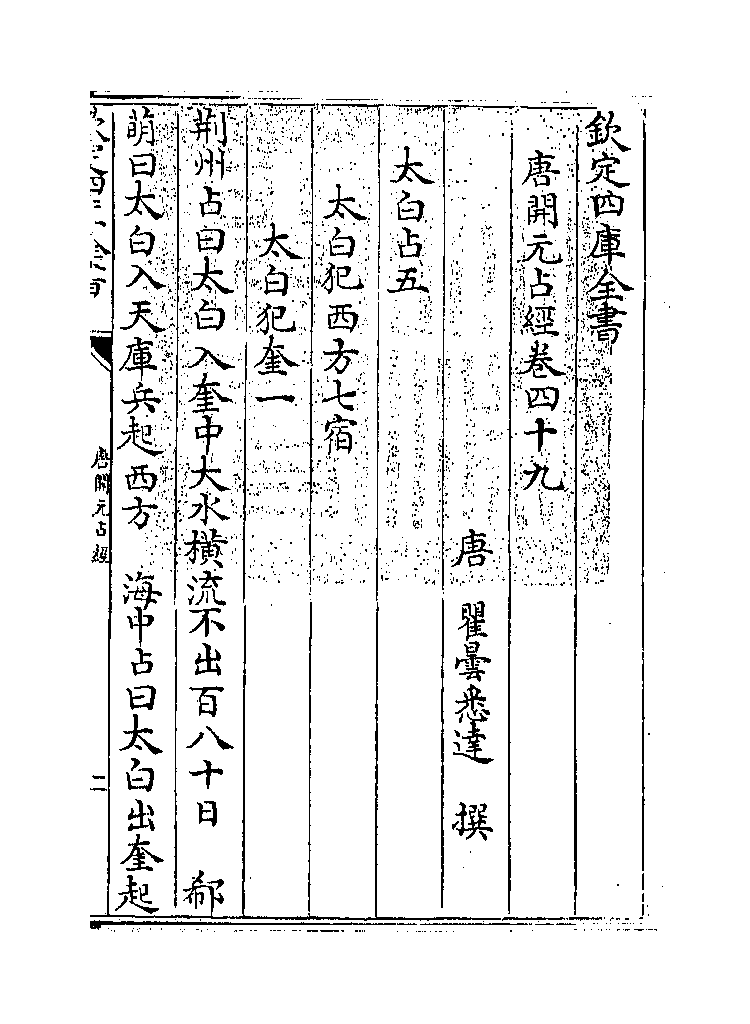 欽定四庫全書
唐開元占經卷四十九
唐 瞿曇悉達 撰
太白占五
太白犯西方七宿
太白犯奎一
荆州占曰太白入奎中大水橫流不出百八十日 郗
萌曰太白入天庫兵起西方 海中占曰太白出奎起
唐開元占經
二